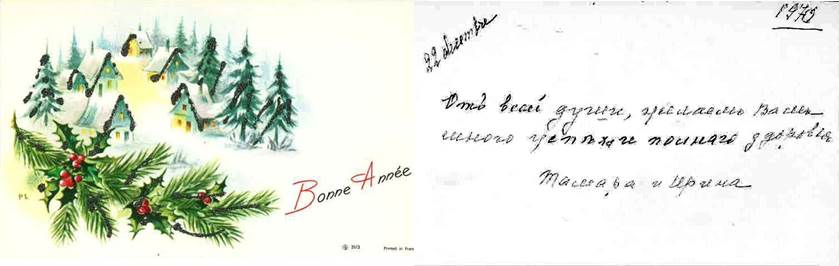 PL
Bonne Année
Printed in France
1975
22 décembre
Отъ всей души, желаемъ Вамъ
много успѣха и полнаго здоровья
Тамара и Ирина